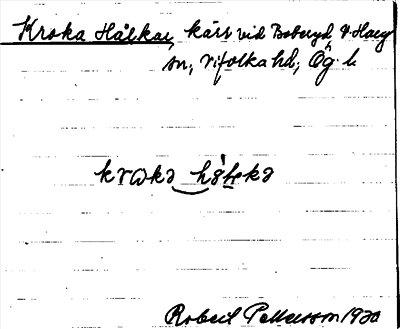 Kroka Hålkar, kärr vid Boberyd V Harg
sn, Vifolka hd, Ög. l.
krɷkə hålkə
Robert Pettersson 1930